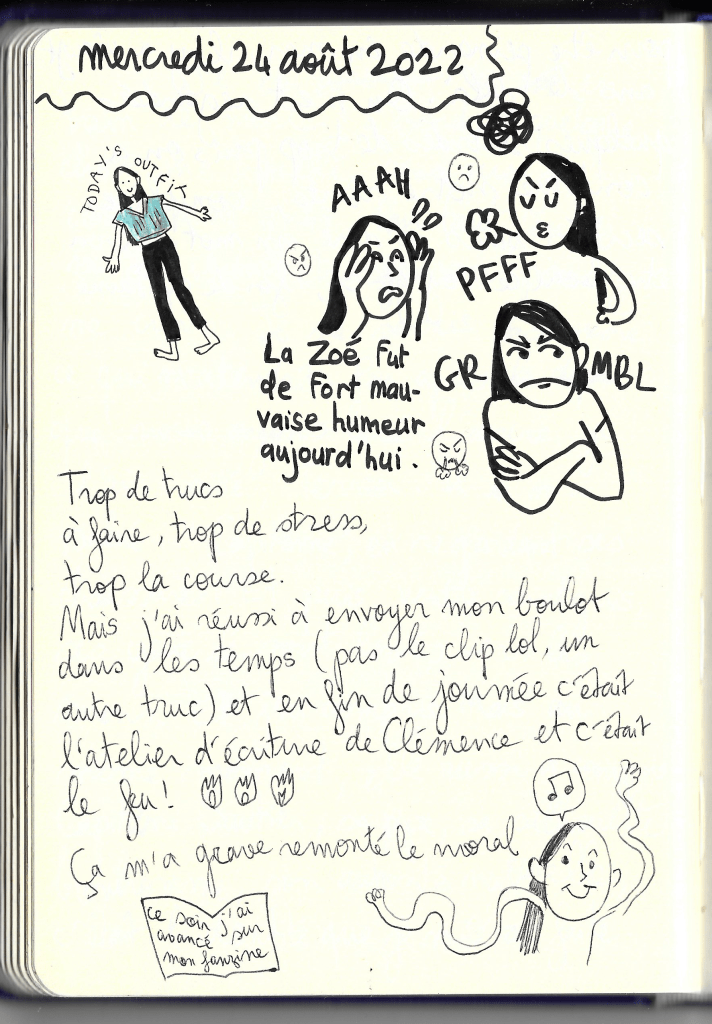 mercredi 24 août 2022
TODAY'S OUTFIT
AAAH
PFFF
GRMBL
La Zoé fut
de fort mau-
vaise humeur
aujourd'hui.
Trop de trucs
à faire, trop de stress,
trop la course.
Mais j'ai réussi à envoyer mon boulot
dans les temps (pas le clip lol, un
autre truc) et en fin de journée c'était
l'atelier d'écriture de Clémence et c'était
le feu!
Ça m'a grave remonté le moral
ce soir j'ai
avancé sur
mon fanzine